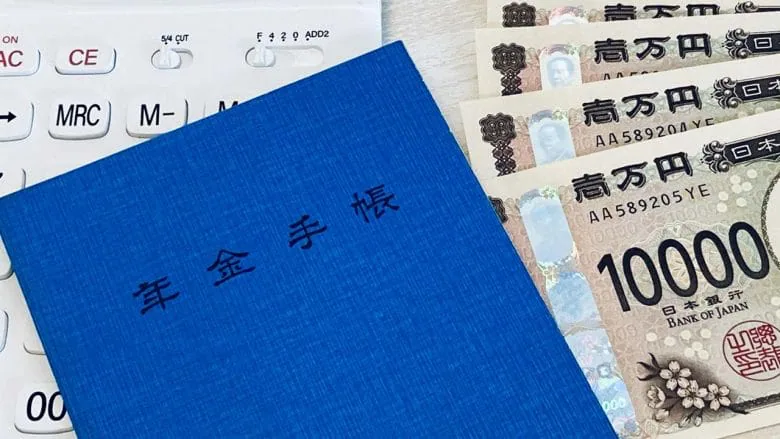 ON
AC
CE
5/4 CUT
F 4 2 0 ADD2
→
MRC
M-
00
年金手帳
壱万円
壱万円
壱万円
AA589204YE
壱万円
日本
AA589205YE
10000
日本銀行
BANK OF JAPAN
000